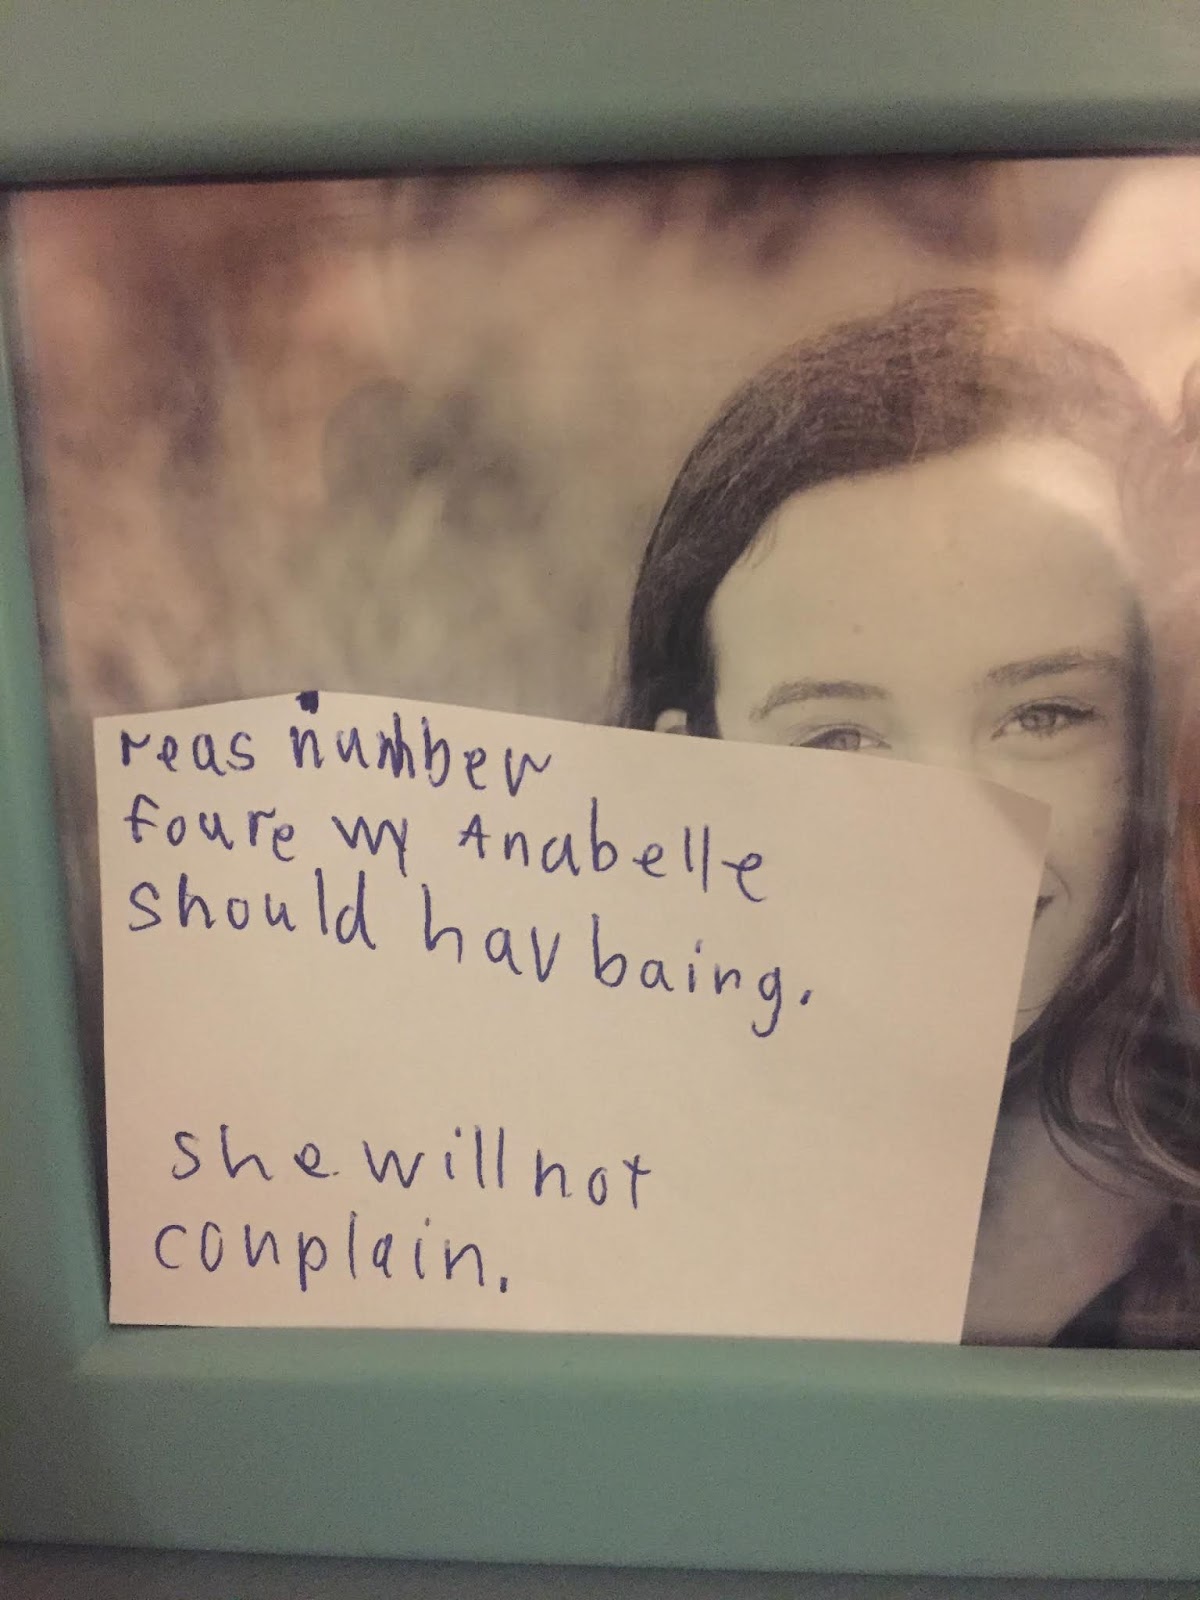 reas number
foure wy Anabelle
should hav baing.
she will not
conplain.